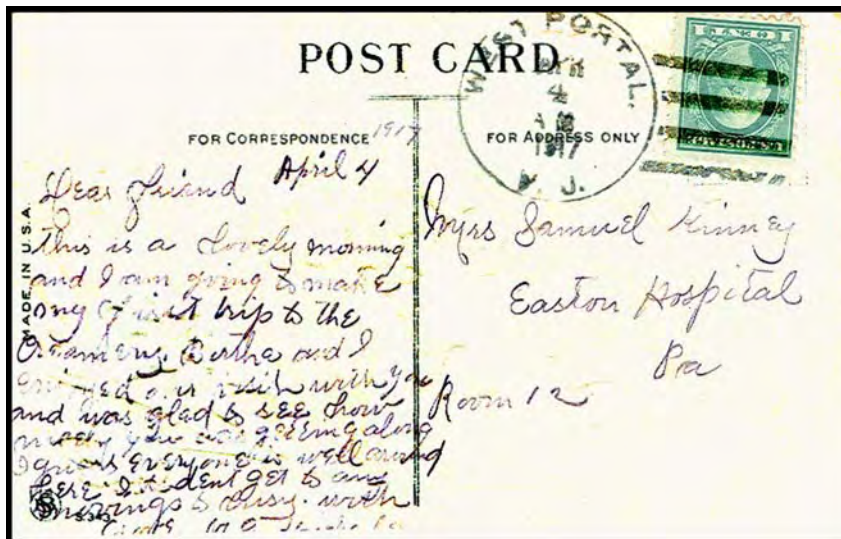 POST CARD
WEST PORTAL.
APR
4
1917
N. J.
FOR CORRESPONDENCE
1917
FOR ADDRESS ONLY
MADE IN U.S.A.
April 4
Dear friend
this is a lovely morning
and I am going to make
my first trip to the
Creamery. Bertha and I
enjoyed our visit with you
and was glad to see how
nicely you was getting along
I guess everyone is well around
here I dent get to any
to busy. with
Mrs Samuel Kinney
Easton Hospital
Pa
Room 12